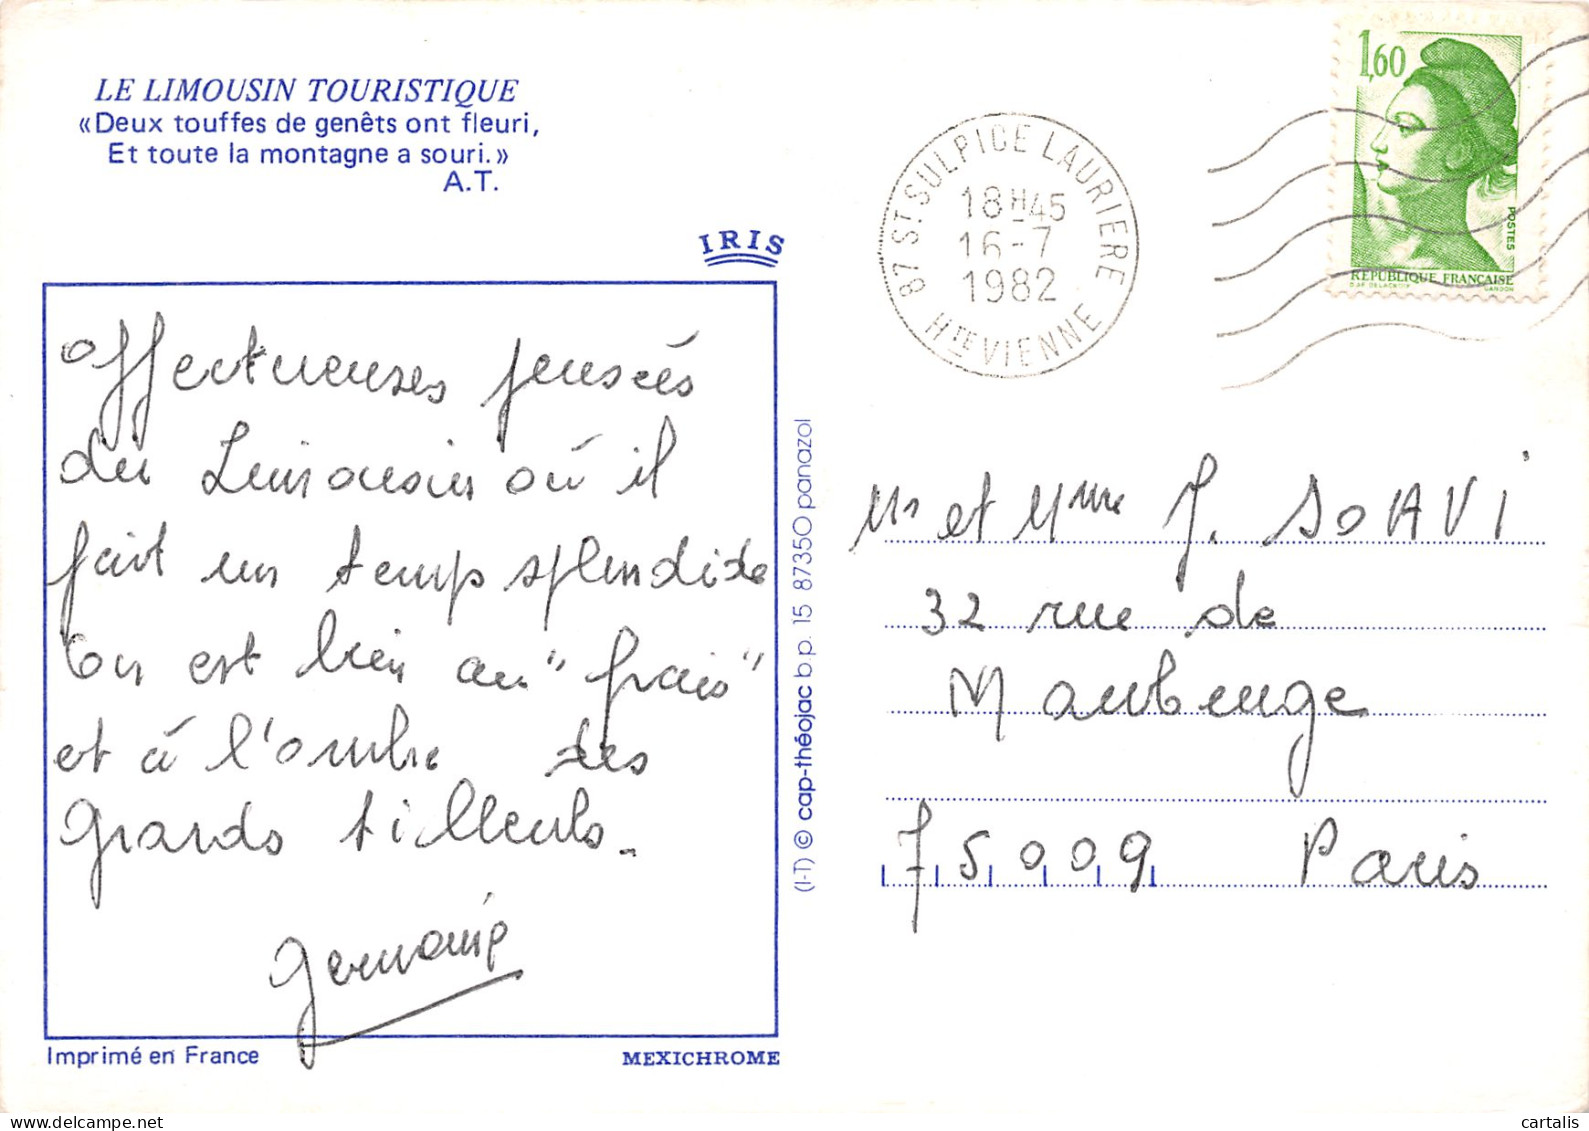 LE LIMOUSIN TOURISTIQUE
«Deux touffes de genêts ont fleuri,
Et toute la montagne a souri.»
A.T.
IRIS
Affectueuses pensées
du Limousin où il
fait un temps splendide
On est bien au "frais"
et à l'ombre des
grands tilleuls.
Germaine
Imprimé en France
MEXICHROME
(I-T) © cap-théojac b.p. 15 87350 panazol
87 ST. SULPICE LAURIERE
18H45
16-7
1982
HTE VIENNE
1,60
POSTES
RÉPUBLIQUE FRANÇAISE
D'AP. DELACROIX
GANDON
Mr et Mme J. SOAVI
32 rue de
Maubeuge
75009 Paris
cartalis